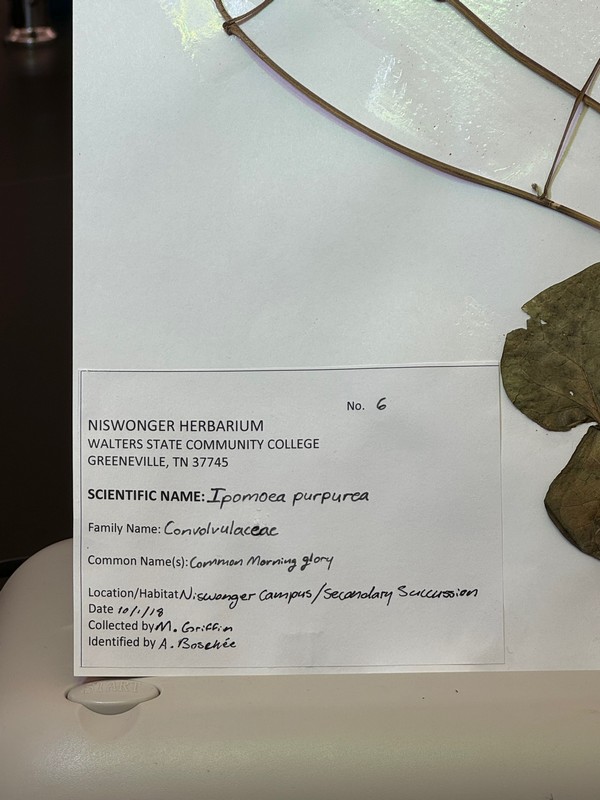 No. 6
NISWONGER HERBARIUM
WALTERS STATE COMMUNITY COLLEGE
GREENEVILLE, TN 37745
SCIENTIFIC NAME: Ipomoea purpurea
Family Name: Convolvulaceae
Common Name(s): Common Morning glory
Location/Habitat Niswonger Campus/Secondary Succussion
Date 10/1/18
Collected by M. Griffin
Identified by A.